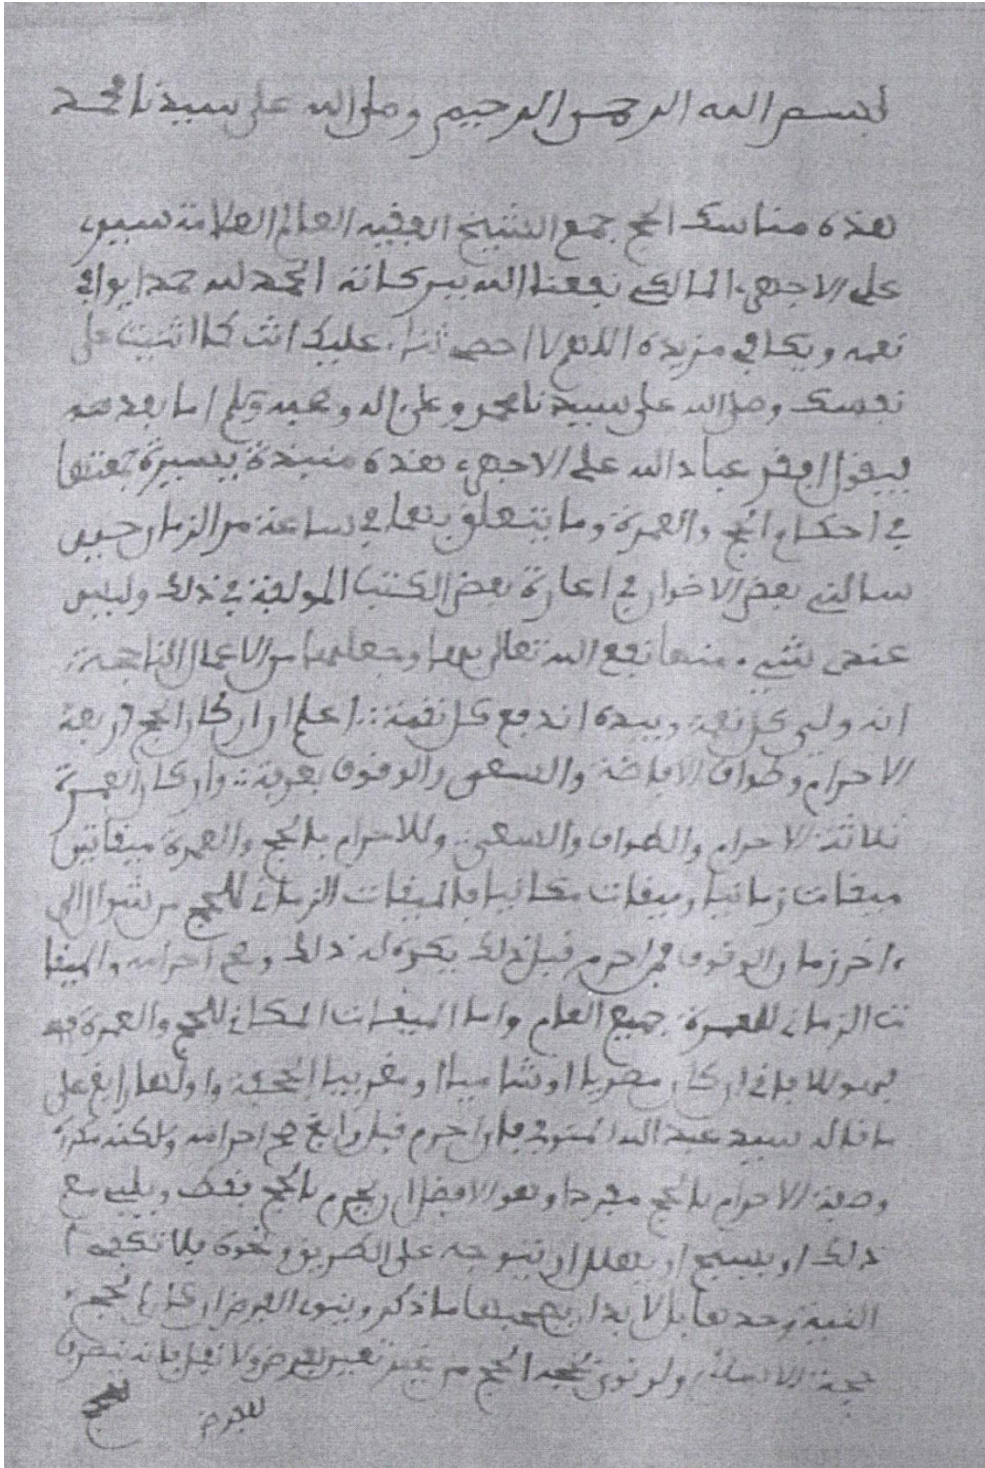 بسم الله الرحمن الرحيم وصلى الله على سيدنا محمد
هذه مناسك الحج جمع الشيخ الفقيه العالم العلامة سيدي
علي الاجهوري المالكي نفعنا الله ببركاته الحمد لله حمدا يوافي
نعمه ويكافي مزيده اللهم لا احصي ثناء عليك انت كما اثنيت على
نفسك وصلى الله على سيدنا محمد وعلى اله وصحبه وسلم اما بعد
فيقول افقر عباد الله علي الاجهوري هذه نبذة يسيرة جمعتها
في احكام الحج والعمرة وما يتعلق بها في ساعة من الزمان حين
سالني بعض الاخوان في اعارة بعض الكتب المولفة في ذلك وليس
عندي شيء منها نفع الله تعالى بها وجعلها من الاعمال الناجحة
انه ولي كل نعمة وبيده اندفع كل نقمة اعلم ان اركان الحج اربعة
الاحرام وطواف الافاضة والسعي والوقوف بعرفة واركان العمرة
ثلاثة الاحرام والطواف والسعي وللاحرام بالحج والعمرة ميقاتين
ميقات زمانيا وميقات مكانيا فالميقات الزماني للحج من شوال الى
ءاخر زمان الوقوف فمن احرم قبل ذلك يكره له ذلك وصح احرامه والميقا
ت الزماني للعمرة جميع العام واما الميقات المكاني للحج والعمرة فهو
للافاقي ان كان مصريا او شاميا او مغربيا الجحفة واولها رابغ على
ما قاله سيد عبد الله المنوفي فان احرم قبل رابغ صح احرامه ولكنه مكروه
وصفة الاحرام بالحج مفردا وهو الافضل ان يحرم بالحج فقط ويلبي مع
ذلك او يسبح او يهلل او يتوجه على الطريق ونحوه فلا تكفي
النية وحدها بل لا بد ان يصحبها ما ذكر وينوي الفرض ان كان لحجه
حجة الاسلام ولو نوى بحجه الحج من غير تعيين لفرض ولا نفل فانه تنصرف
للفرض
للحج